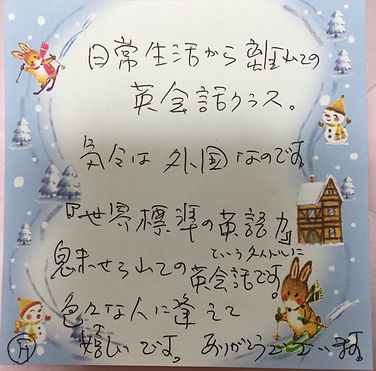 日常生活から離れての
英会話クラス。
気分は 外国なのです。
『世界標準の英語力』
というタイトルに
魅せられての英会話です。
色々な人に逢えて
嬉しいです。ありがとうございます。